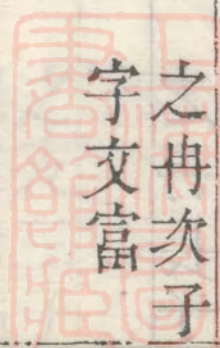 之冉次子
字文富